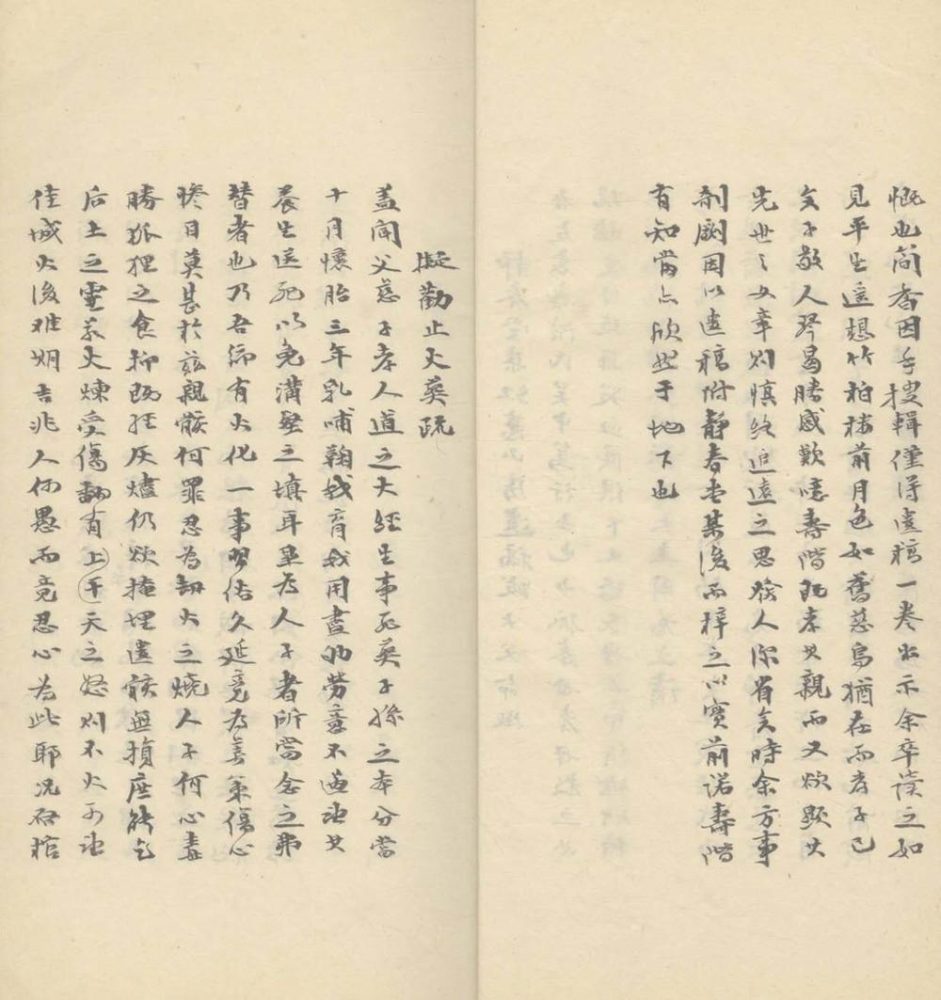 慨也简香因手搜輯僅得遺稿一卷出示余卒讀之如
見平生遥想竹柏樓前月色如舊慈烏猶在而孝子已
矣不敢人琴曷勝感歎嘻壽階既孝其親而又欲顯其
先世之文章則慎終追遠之思發人深省矣時余方事
剞劂因以遺稿附靜春堂集後而梓之以實前諾壽階
有知當亦欣然于地下也
擬勸止火葬疏
蓋聞父慈子孝人道之大經生事死葬子孫之本分當
十月懷胎三年乳哺鞠我育我用盡劬勞意不過冀其
養生送死以免溝壑之填耳是為人子者所當念之弗
替者也乃吾鄉有火化一事習俗久延竟為善策傷心
慘目莫甚於茲親骸何罪忍為劫火之燒人子何心毒
勝狐狸之食抑既經灰燼仍欲掩埋遺骸無損庶能乞
后土之靈若火煉受傷翻有上干天之怒則不火可知
佳城火後難期吉兆人何愚而竟忍心為此耶况啟棺